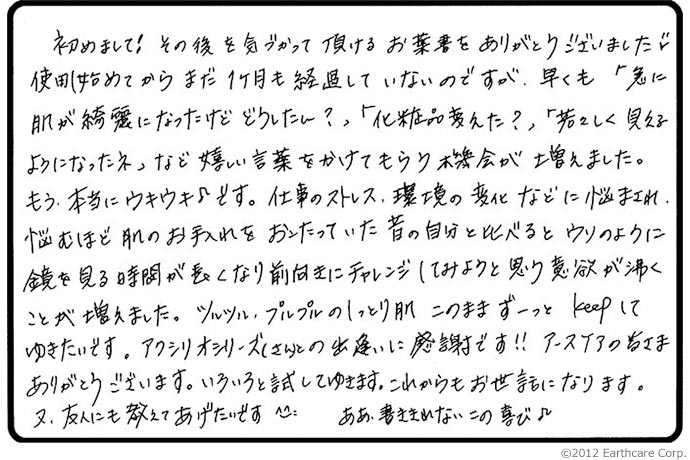 初めまして! その後を気づかって頂けるお葉書をありがとうございました!!
使用し始めてからまだ1ケ月も経過していないのですが、早くも「急に
肌が綺麗になったけどどうしたん?」「化粧品変えた?」「若々しく見える
ようになったネ」など嬉しい言葉をかけてもらう機会が増えました。
もう、本当にウキウキ♪です。仕事のストレス、環境の変化などに悩まされ、
悩むほど肌のお手入れをおこたっていた昔の自分と比べるとウソのように
鏡を見る時間が長くなり前向きにチャレンジしてみようと思う意欲が沸く
ことが増えました。ツルツル、プルプルのしっとり肌 このままずーっと keepして
ゆきたいです。アクシリオシリーズ(さん)との出逢いに感謝です!! アースケアの皆さま
ありがとうございます。いろいろと試してゆきます。これからもお世話になります。
又、友人にも教えてあげたいです ああ、書ききれないこの喜び♪
©2012 Earthcare Corp.